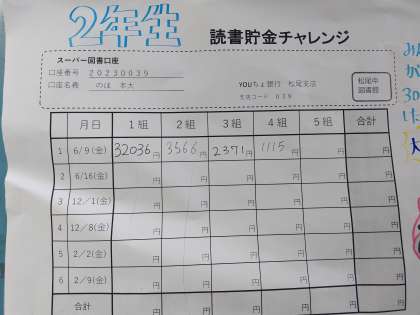 2年生 読書貯金チャレンジ
スーパー図書口座
口座番号 20230039
口座名義 のぼ 本大
YOUちょ銀行 松尾支店
支店コード 039
松尾中
図書館
月日 1組 2組 3組 4組 5組 合計
1 6/9(金) 32036円 3566円 2371円 1115円 円 円
2 6/16(金) 円 円 円 円 円 円
3 12/1(金) 円 円 円 円 円 円
4 12/8(金) 円 円 円 円 円 円
5 2/2(金) 円 円 円 円 円 円
6 2/9(金) 円 円 円 円 円 円
合計 円 円 円 円 円 円